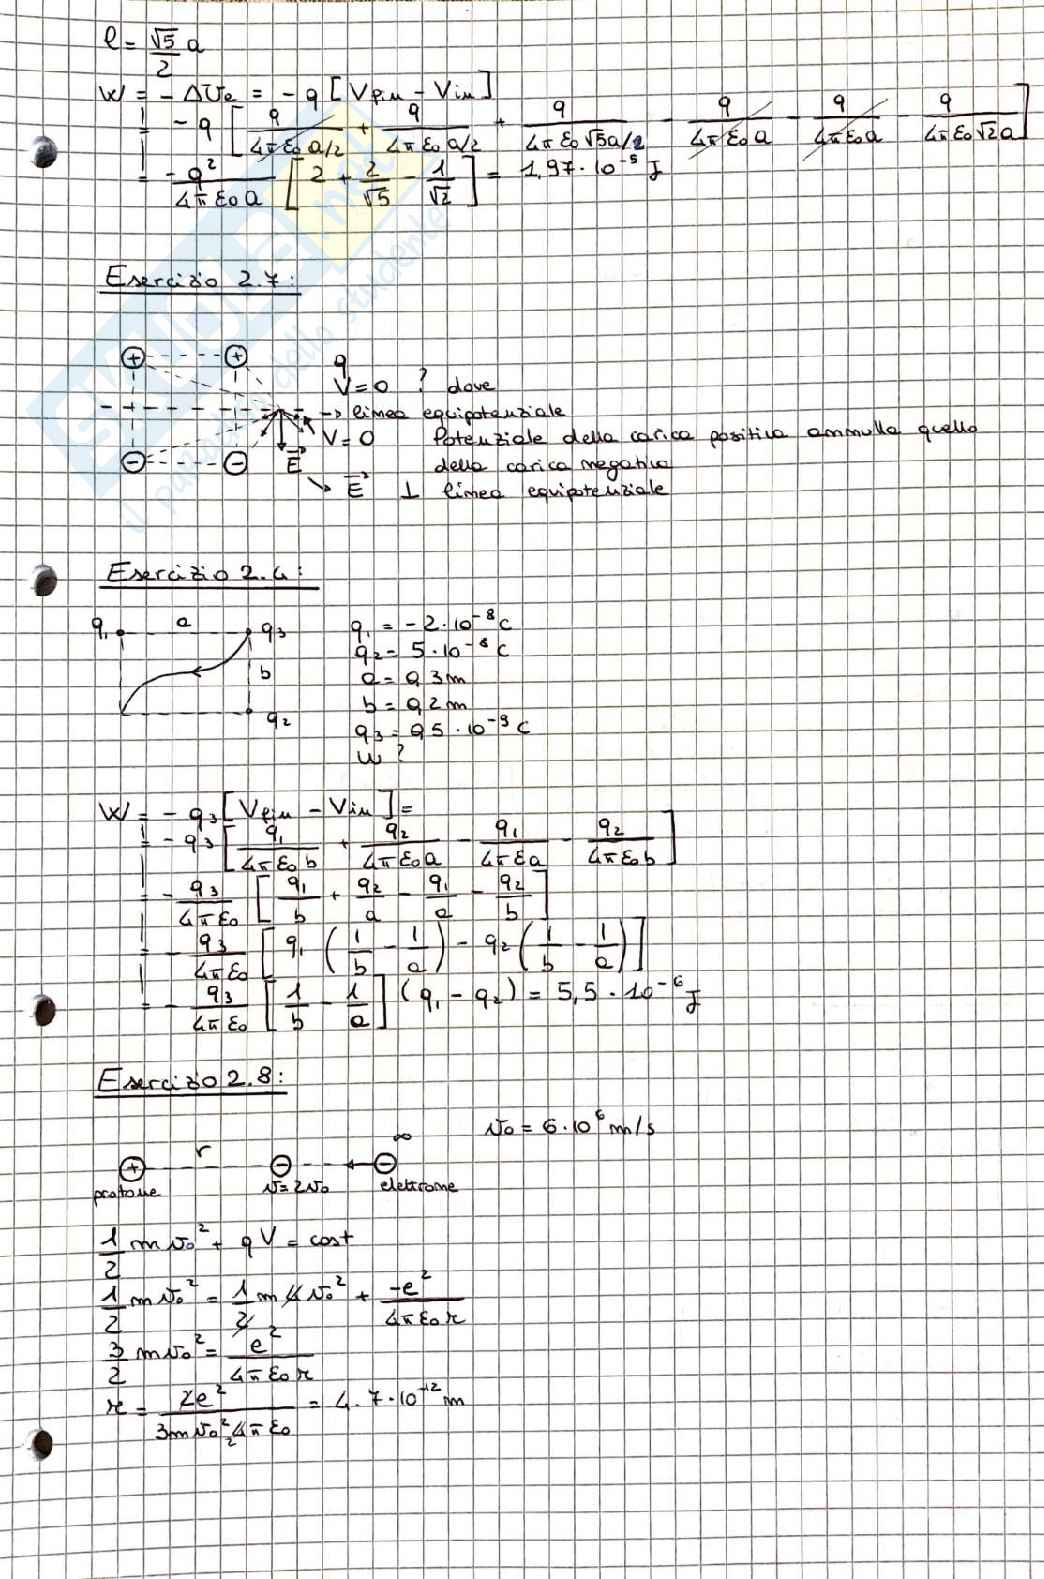 l = √5/2 a
W = - ΔUe = - q [Vfin - Vin]
= - q [q/(4πε0 a/2) + q/(4πε0 a/2) + q/(4πε0 √5a/2) - q/(4πε0 a) - q/(4πε0 a) - q/(4πε0 √2a)]
= -q²/(4πε0 a) [2 + 2/√5 - 1/√2] = 1,97·10⁻⁵ J
Esercizio 2.7:
+ + q
V=0 ? dove
-> linea equipotenziale
V=0 Potenziale della carica positiva annulla quello
- - E⃗ della carica negativa
↘ E⃗ ⊥ linea equipotenziale
Esercizio 2.4:
q1 a q3 q1 = -2·10⁻⁸ C
q2 = 5·10⁻⁸ C
b a = 0,3m
b = 0,2m
q2 q3 = 0,5·10⁻⁹ C
W?
W = - q3 [Vfin - Vin] =
= - q3 [q1/(4πε0 b) + q2/(4πε0 a) - q1/(4πε a) - q2/(4πε0 b)]
= - q3/(4πε0) [q1/b + q2/a - q1/a - q2/b]
= - q3/(4πε0) [q1 (1/b - 1/a) - q2 (1/b - 1/a)]
= - q3/(4πε0) [1/b - 1/a] (q1 - q2) = 5,5·10⁻⁶ J
Esercizio 2.8:
v0 = 6·10⁶ m/s
r ∞
+ - -
protone v=2v0 elettrone
1/2 m v0² + qV = cost
1/2 m v0² = 1/2 m 4 v0² + -e²/(4πε0 r)
3/2 m v0² = e²/(4πε0 r)
r = 2e²/(3m v0² 4πε0) = 4.7·10⁻¹² m